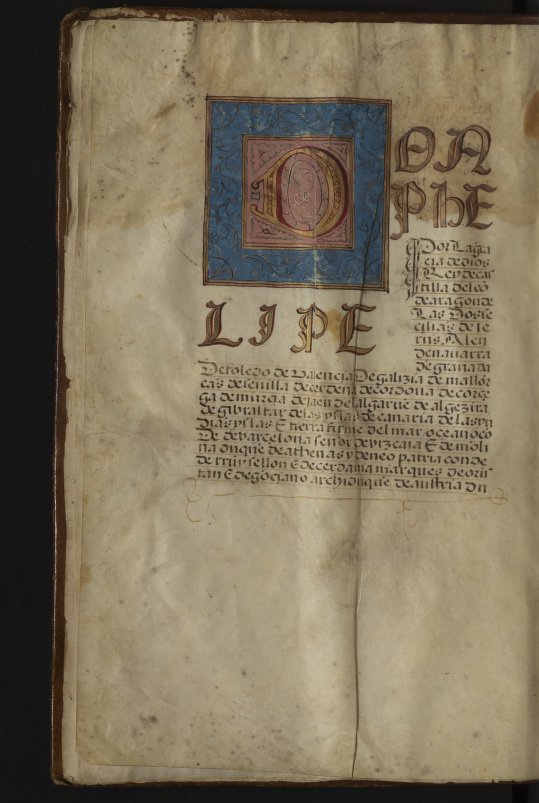 DON
PhE
LIPE
Por La gra
cia de dios
Rey de cas
tilla de leõ
de aragon de
Las Dos se
cilias de Je
rus Alen
de navarra
de granada
De toledo de valencia De galizia de mallor
cas de sevilla de cerdena de cordova de corçe
ga de murçia de jaen del algarve de algezira
de gibraltar de las yslas de canaria de las yn
dias yslas E tierra firme del mar oceano cõ
De de varcelona señor de vizcaia E de moli
na duque de athenas y de neo patria conde
de rruysellon E de cerdania marques de oris
tan E de goçiano archiduque de austria du